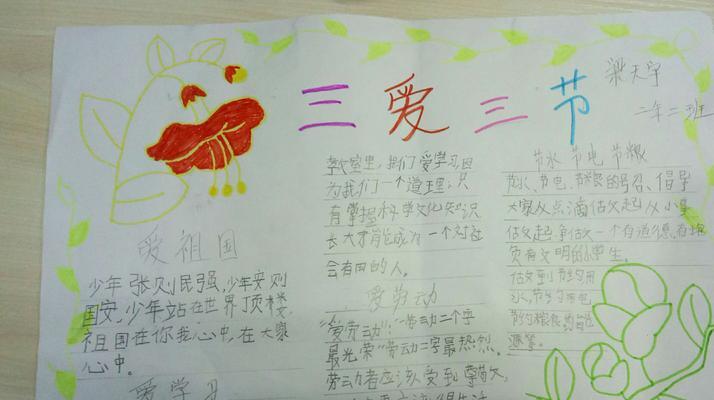 三爱三节
梁天宇
二年二班
爱祖国
少年张则民强,少年安则
国安,少年站在世界顶楼
祖国在你我心中,在大家
心中。
爱学习
教室里,我们爱学习,因
为我们一个道理:只
有掌握科学文化知识
长大才能成为一个对社
会有用的人。
爱劳动
"爱劳动":"劳动二个字
最光荣"劳动二字最热烈。
劳动者应该受到尊
节水 节电 节粮
节水、节电、节粮的号召、倡导
大家从点滴做起从小事
做起争做一个有道德、有
负有文明的小学生。
做到节约用
水,节约用电
节约粮食,